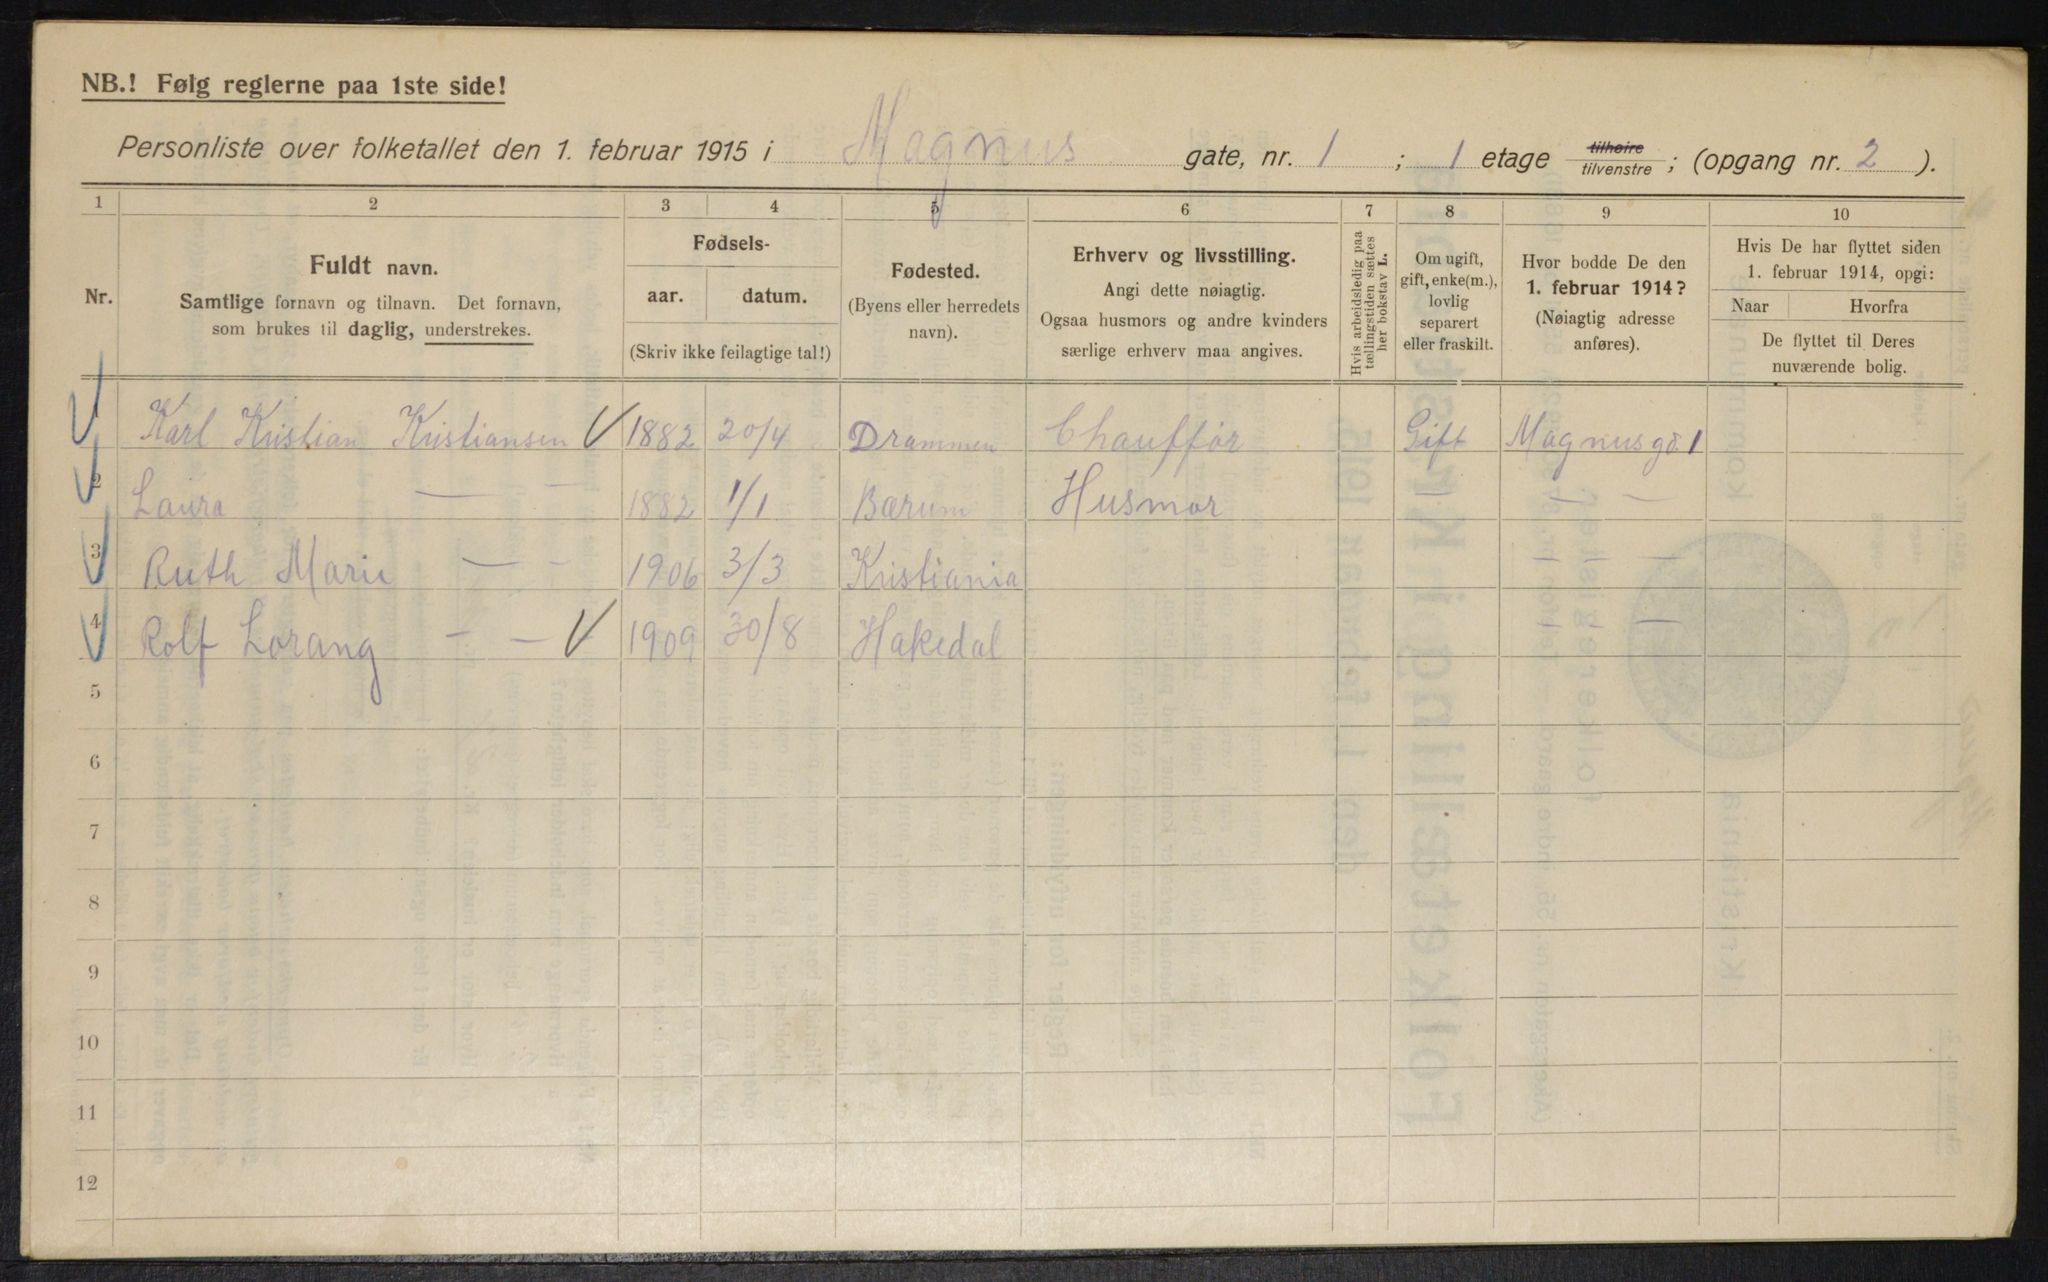 NB.! Følg reglerne paa 1ste side!
Personliste over folketallet den 1. februar 1915 i Magnus gate, nr. 1 ; 1 etage tilhøire tilvenstre ; (opgang nr. 2 ).
1 2 3 4 5 6 7 8 9 10
Nr.
Fuldt navn.
Samtlige fornavn og tilnavn. Det fornavn,
som brukes til daglig, understrekes.
Fødsels-
aar. datum.
(Skriv ikke feilagtige tal!)
Fødested.
(Byens eller herredets
navn).
Erhverv og livsstilling.
Angi dette nøiagtig.
Ogsaa husmors og andre kvinders
særlige erhverv maa angives.
Hvis arbeidsledig paa
tællingstiden sættes
her bokstav L.
Om ugift,
gift, enke(m.),
lovlig
separert
eller fraskilt.
Hvor bodde De den
1. februar 1914?
(Nøiagtig adresse
anføres).
Hvis De har flyttet siden
1. februar 1914, opgi:
Naar Hvorfra
De flyttet til Deres
nuværende bolig.
1 Karl Kristian Kristiansen 1882 20/4 Drammen Chauffør Gift Magnusgd. 1
2 Laura — — 1882 1/1 Bærum Husmor — —
3 Ruth Marie — — 1906 3/3 Kristiania — —
4 Rolf Lorang — — 1909 30/8 Hakedal —
5
6
7
8
9
10
11
12